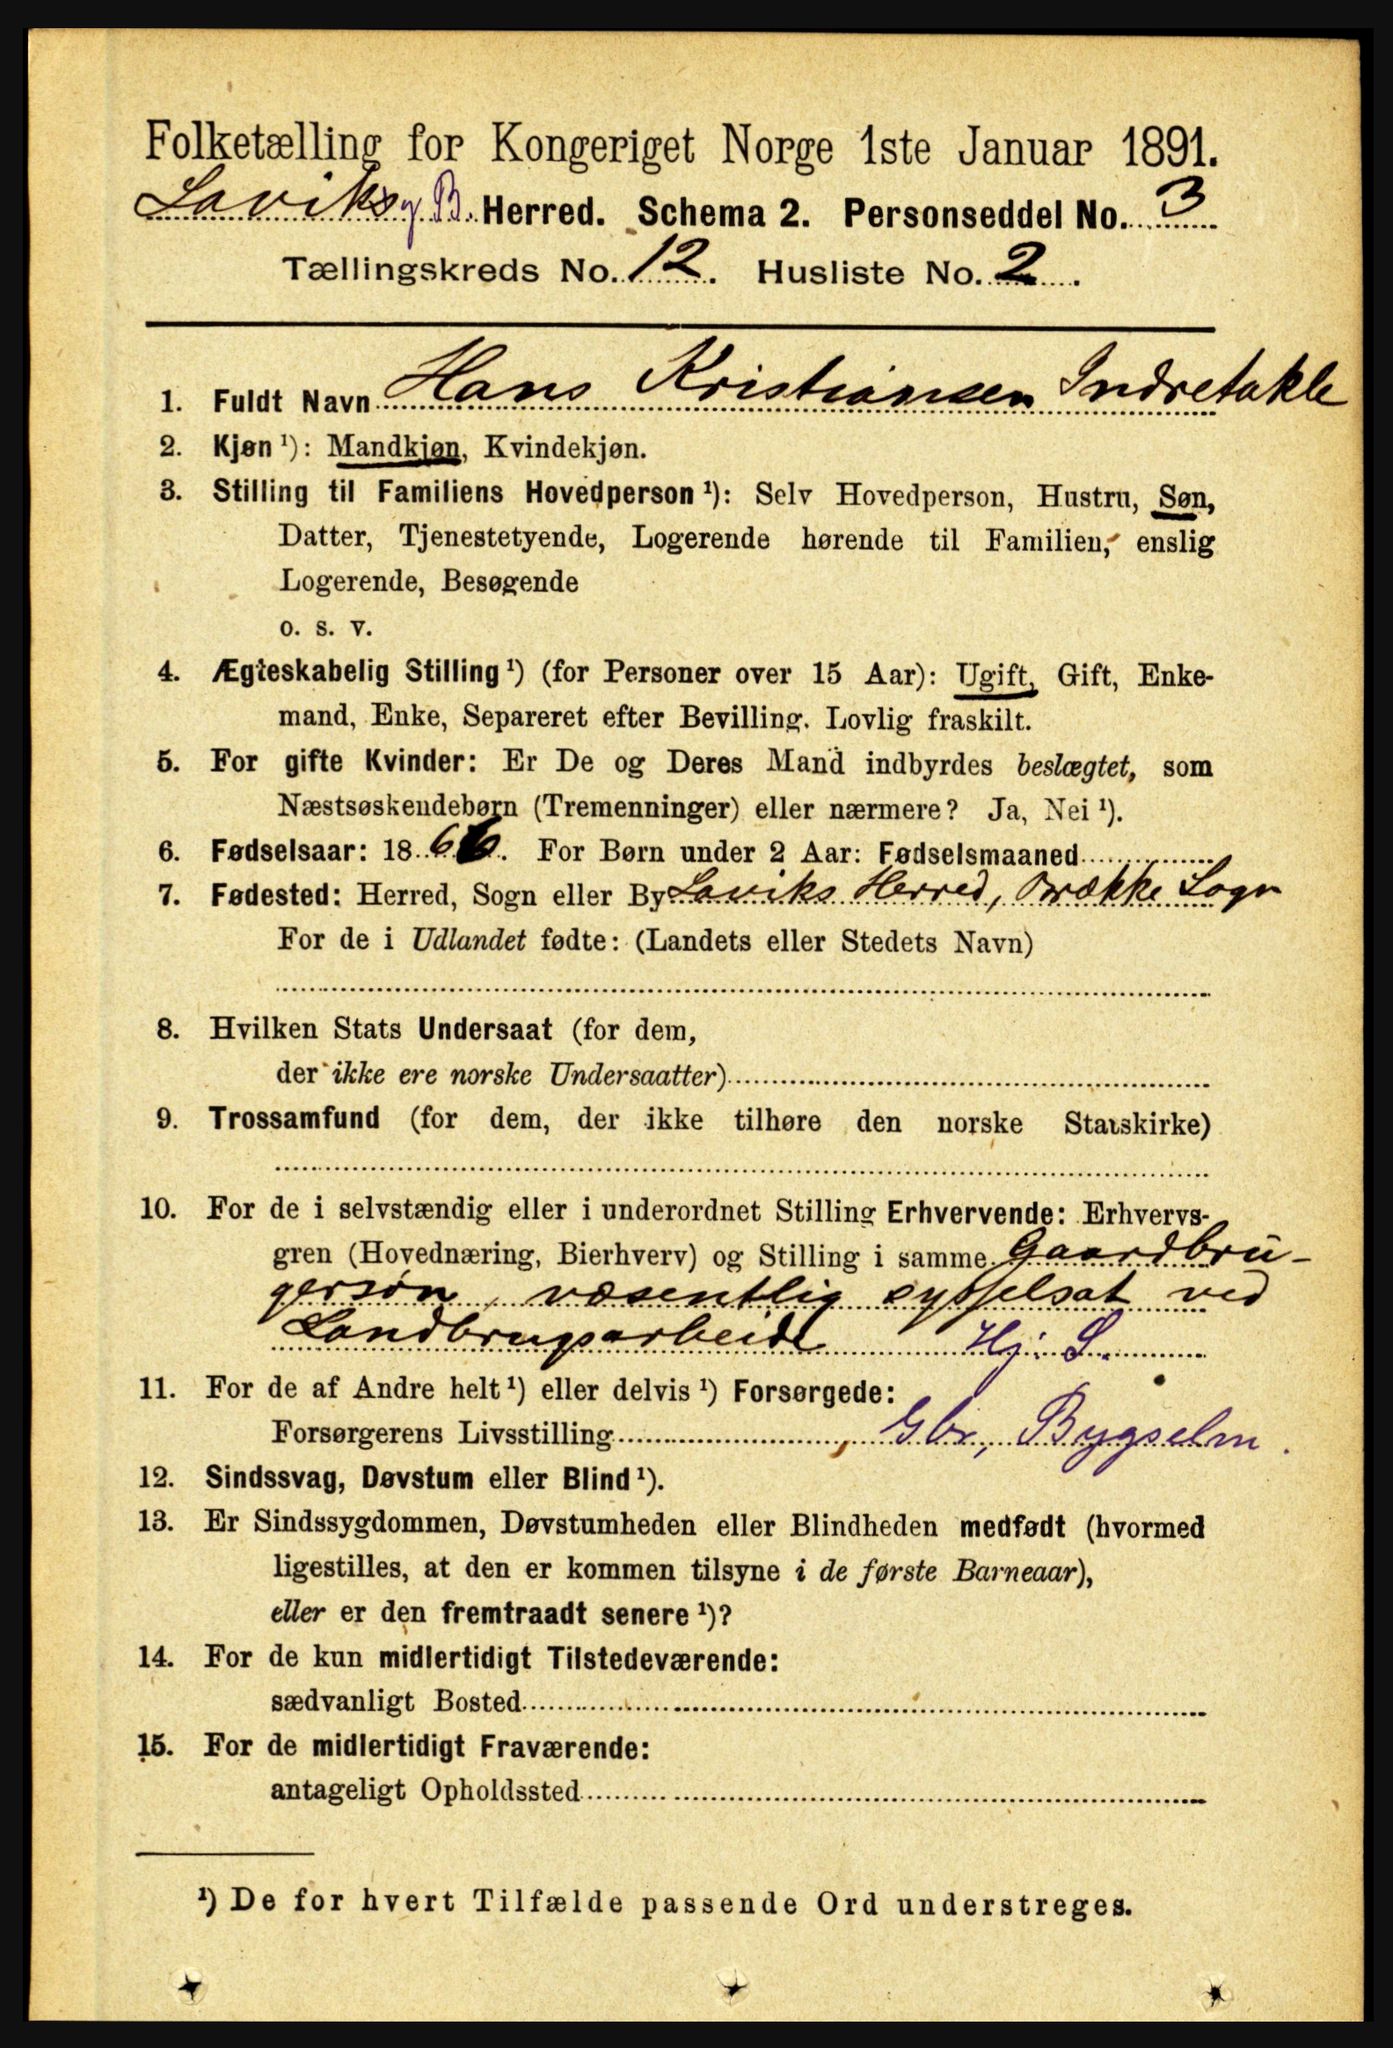 Folketælling for Kongeriget Norge 1ste Januar 1891.
Laviks og B. Herred. Schema 2. Personseddel No. 3
Tællingskreds No. 12. Husliste No. 2.
1. Fuldt Navn Hans Kristiansen Indretakle
2. Kjøn ¹): Mandkjøn, Kvindekjøn.
3. Stilling til Familiens Hovedperson ¹): Selv Hovedperson, Hustru, Søn,
Datter, Tjenestetyende, Logerende hørende til Familien, enslig
Logerende, Besøgende
o. s. v.
4. Ægteskabelig Stilling ¹) (for Personer over 15 Aar): Ugift, Gift, Enke-
mand, Enke, Separeret efter Bevilling. Lovlig fraskilt.
5. For gifte Kvinder: Er De og Deres Mand indbyrdes beslægtet, som
Næstsøskendebørn (Tremenninger) eller nærmere? Ja, Nei ¹).
6. Fødselsaar: 1866. For Børn under 2 Aar: Fødselsmaaned
7. Fødested: Herred, Sogn eller By Laviks Herred, Brække Sogn
For de i Udlandet fødte: (Landets eller Stedets Navn)
8. Hvilken Stats Undersaat (for dem,
der ikke ere norske Undersaatter)
9. Trossamfund (for dem, der ikke tilhøre den norske Statskirke)
10. For de i selvstændig eller i underordnet Stilling Erhvervende: Erhvervs-
gren (Hovednæring, Bierhverv) og Stilling i samme Gaardbru-
gersøn, væsentlig sysselsat ved
Landbrugsarbeide Hj. S.
11. For de af Andre helt ¹) eller delvis ¹) Forsørgede:
Forsørgerens Livsstilling Gbr, Bygselm.
12. Sindssvag, Døvstum eller Blind ¹).
13. Er Sindssygdommen, Døvstumheden eller Blindheden medfødt (hvormed
ligestilles, at den er kommen tilsyne i de første Barneaar),
eller er den fremtraadt senere ¹)?
14. For de kun midlertidigt Tilstedeværende:
sædvanligt Bosted
15. For de midlertidigt Fraværende:
antageligt Opholdssted
¹) De for hvert Tilfælde passende Ord understreges.